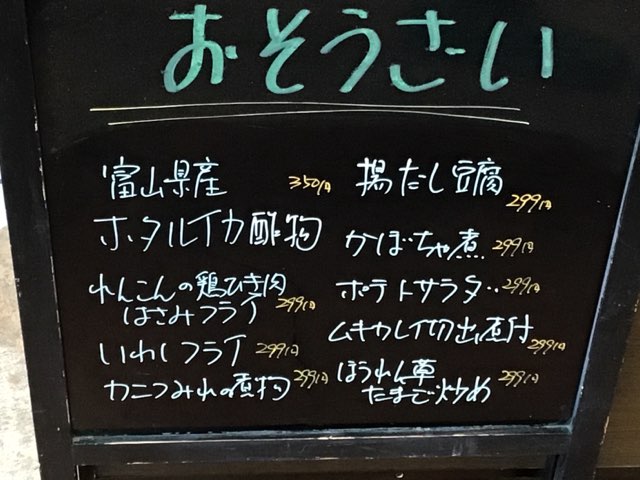 おそうざい
富山県産 350円
ホタルイカ酢物
れんこんの鶏ひき肉
はさみフライ 299円
いわしフライ 299円
カニつみれの煮物 299円
揚だし豆腐
299円
かぼちゃ煮 299円
ポテトサラダ 299円
ムキカレイ切出し煮付
299円
ほうれん草 299円
たまご炒め